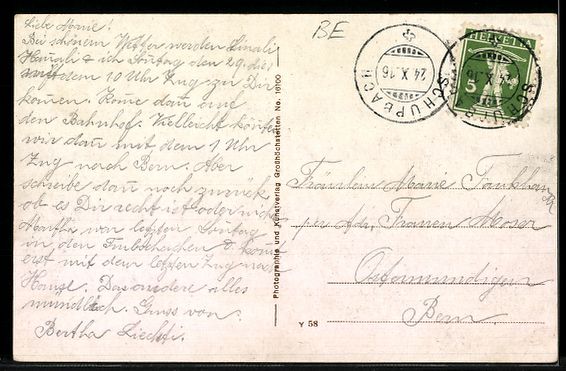 Liebe Marie!
Bei schönem Wetter werden Lineli
Hannah & ich Sonntag den 29. dies
mit dem 10 Uhr Zug zu Dir
kommen. Komme dann an
den Bahnhof. Vielleicht könnten
wir dann mit dem 1 Uhr
Zug nach Bern. Aber
schreibe dann noch zurück,
ob es Dir recht ist oder nicht
Martha war letzten Sonntag
in den & kommt
erst mit dem letzten Zug nach
Hause. Das andere alles
mündlich. Gruss von
Bertha Liechti.
BE
SCHÜPBACH
24.X.16
HELVETIA
5
SCHÜPBACH
24.X.16
Photographie und Kunstverlag Großhöchstetten No. 16100
Fräulein Marie Fankhauser
per Adr. Frauen Moser
Ostermundigen
Bern.
Y 58